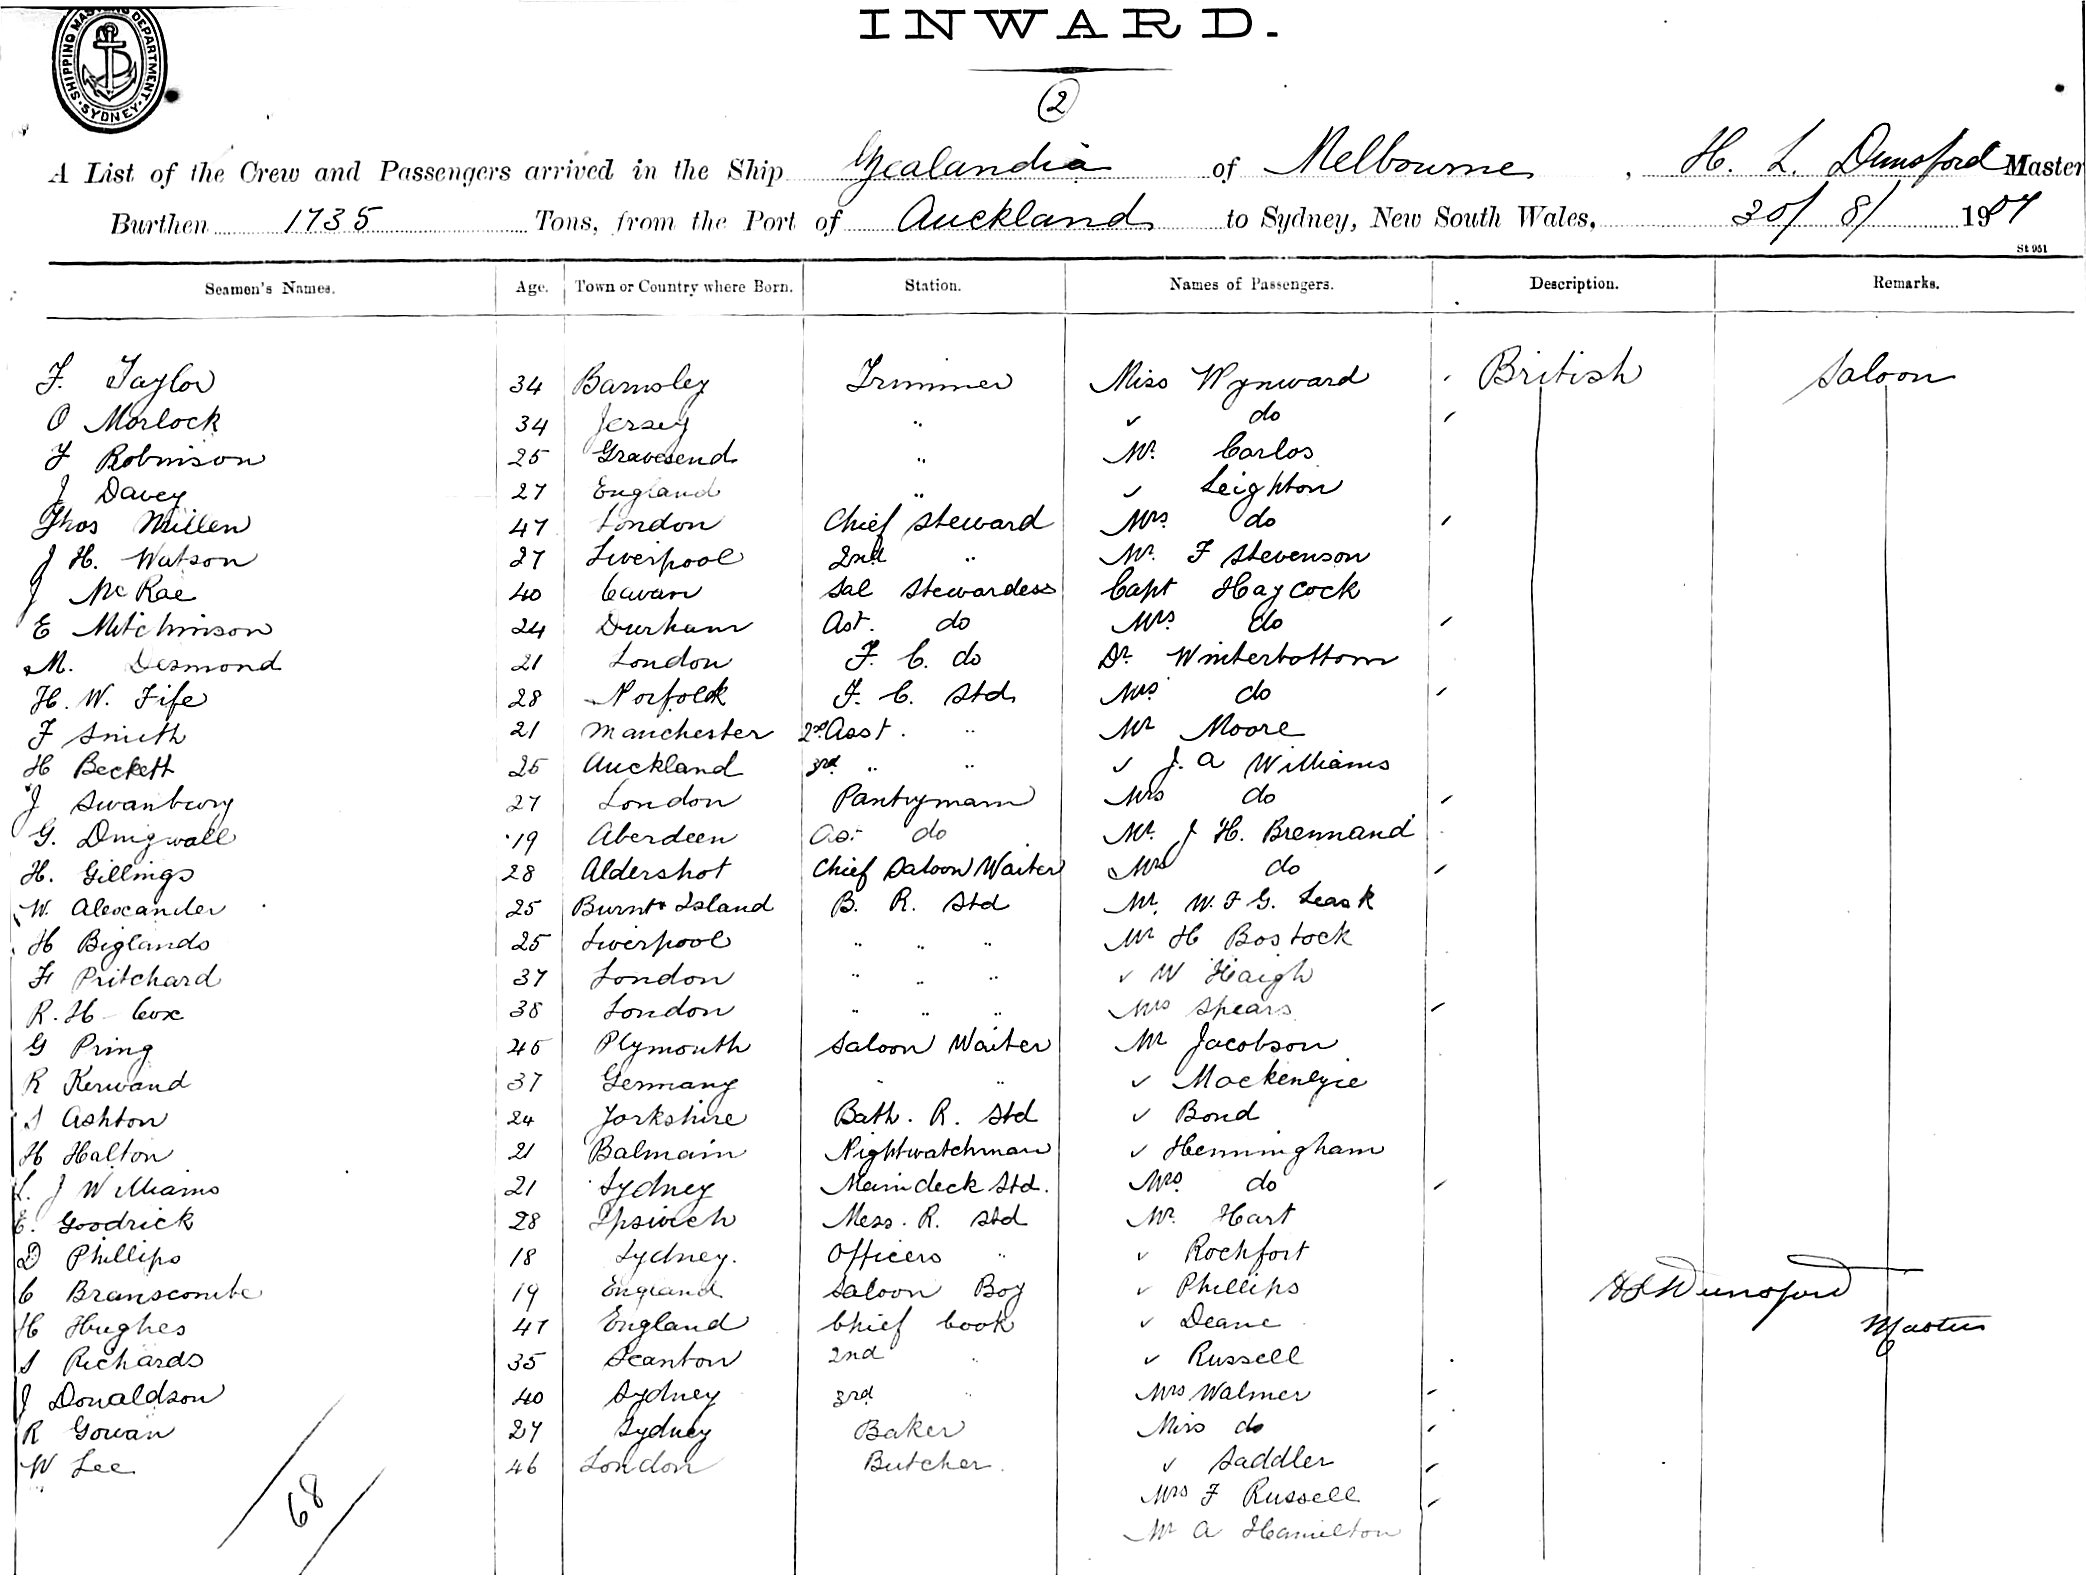 INWARD.
SHIPPING MASTERS DEPARTMENT. SYDNEY.
2
A List of the Crew and Passengers arrived in the Ship Zealandia of Melbourne, H. L. Dunsford Master
Burthen 1735 Tons, from the Port of Auckland to Sydney, New South Wales, 30/8/1907
St 951
Seamen's Names. Age. Town or Country where Born. Station. Names of Passengers. Description. Remarks.
F. Taylor 34 Barnsley Trimmer Miss Wynward British Saloon
O Morlock 34 Jersey " ✓ do
F Robinson 25 Gravesend " Mr. Carlos
J Davey 27 England " ✓ Leighton
Thos Millen 47 London Chief Steward Mrs. do
J H. Watson 27 Liverpool 2nd " Mr. F Stevenson
J McRae 40 Cavan Sal Stewardess Capt Haycock
E Mitchinson 24 Durham Ast. do Mrs do
M. Desmond 21 London F. C. do Dr. Winterbottom
H. W. Fife 28 Norfolk F. C. Std Mrs do
F Smith 21 Manchester 2nd Asst. " Mr Moore
H Beckett 25 Auckland 3rd " " ✓ J. A Williams
J Swanbury 27 London Pantryman Mrs do
G. Dingwall 19 Aberdeen As. do Mr. J H. Brennand
H. Gillings 28 Aldershot Chief Saloon Waiter Mrs do
W. Alexander 25 Burnt Island B. R. Std Mr. W. F G. Leask
H Biglands 25 Liverpool " " " Mr H Bostock
F Pritchard 37 London " " " ✓ W Haigh
R. H Cox 38 London " " " Mrs Spears
G Pring 45 Plymouth Saloon Waiter Mr Jacobson
R Kerwand 37 Germany " " ✓ Mackenzie
J Ashton 24 Yorkshire Bath. R. Std ✓ Bond
H Halton 21 Balmain Nightwatchman ✓ Henningham
L. J Williams 21 Sydney Maindeck Std. Mrs. do
E. Goodrick 28 Ipswich Mess. R. Std Mr. Hart
D Phillips 18 Sydney. Officers " ✓ Rochfort
C Branscombe 19 England Saloon Boy ✓ Phillips
H Hughes 47 England Chief Cook ✓ Deane
HL Dunsford
Master
J Richards 35 Scanton 2nd " ✓ Russell
J Donaldson 40 Sydney 3rd " Mrs Walmer
R Gowan 27 Sydney Baker Miss do
W Lee 46 London Butcher. ✓ Saddler
Mrs F Russell
68
Mr A Hamilton